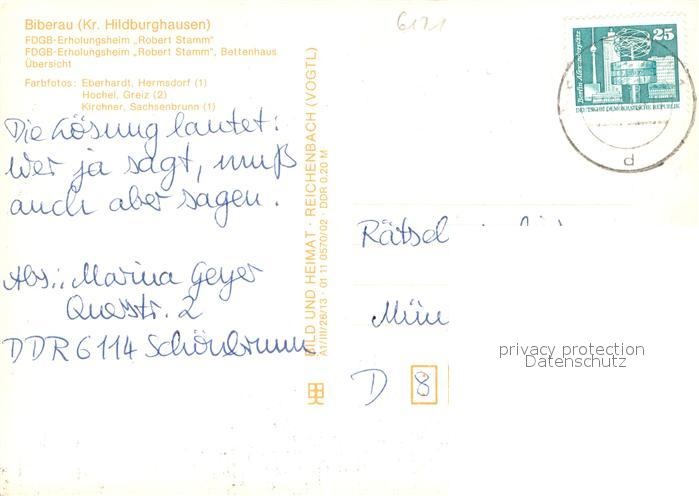 Biberau (Kr. Hildburghausen)
FDGB-Erholungsheim „Robert Stamm"
FDGB-Erholungsheim „Robert Stamm", Bettenhaus
Übersicht
Farbfotos: Eberhardt, Hermsdorf (1)
Hochel, Greiz (2)
Kirchner, Sachsenbrunn (1)
Die Lösung lautet:
Wer ja sagt, muß
auch aber sagen.
Abs.: Marina Geyer
Querstr. 2
DDR 6114 Schönbrunn
BILD UND HEIMAT · REICHENBACH (VOGTL)
A1/III/26/13 · 01 11 0570/02 · DDR 0,20 M
6121
25
Berlin, Alexanderplatz
DEUTSCHE DEMOKRATISCHE REPUBLIK
d
Rätsel
Mün
D 8
privacy protection
Datenschutz